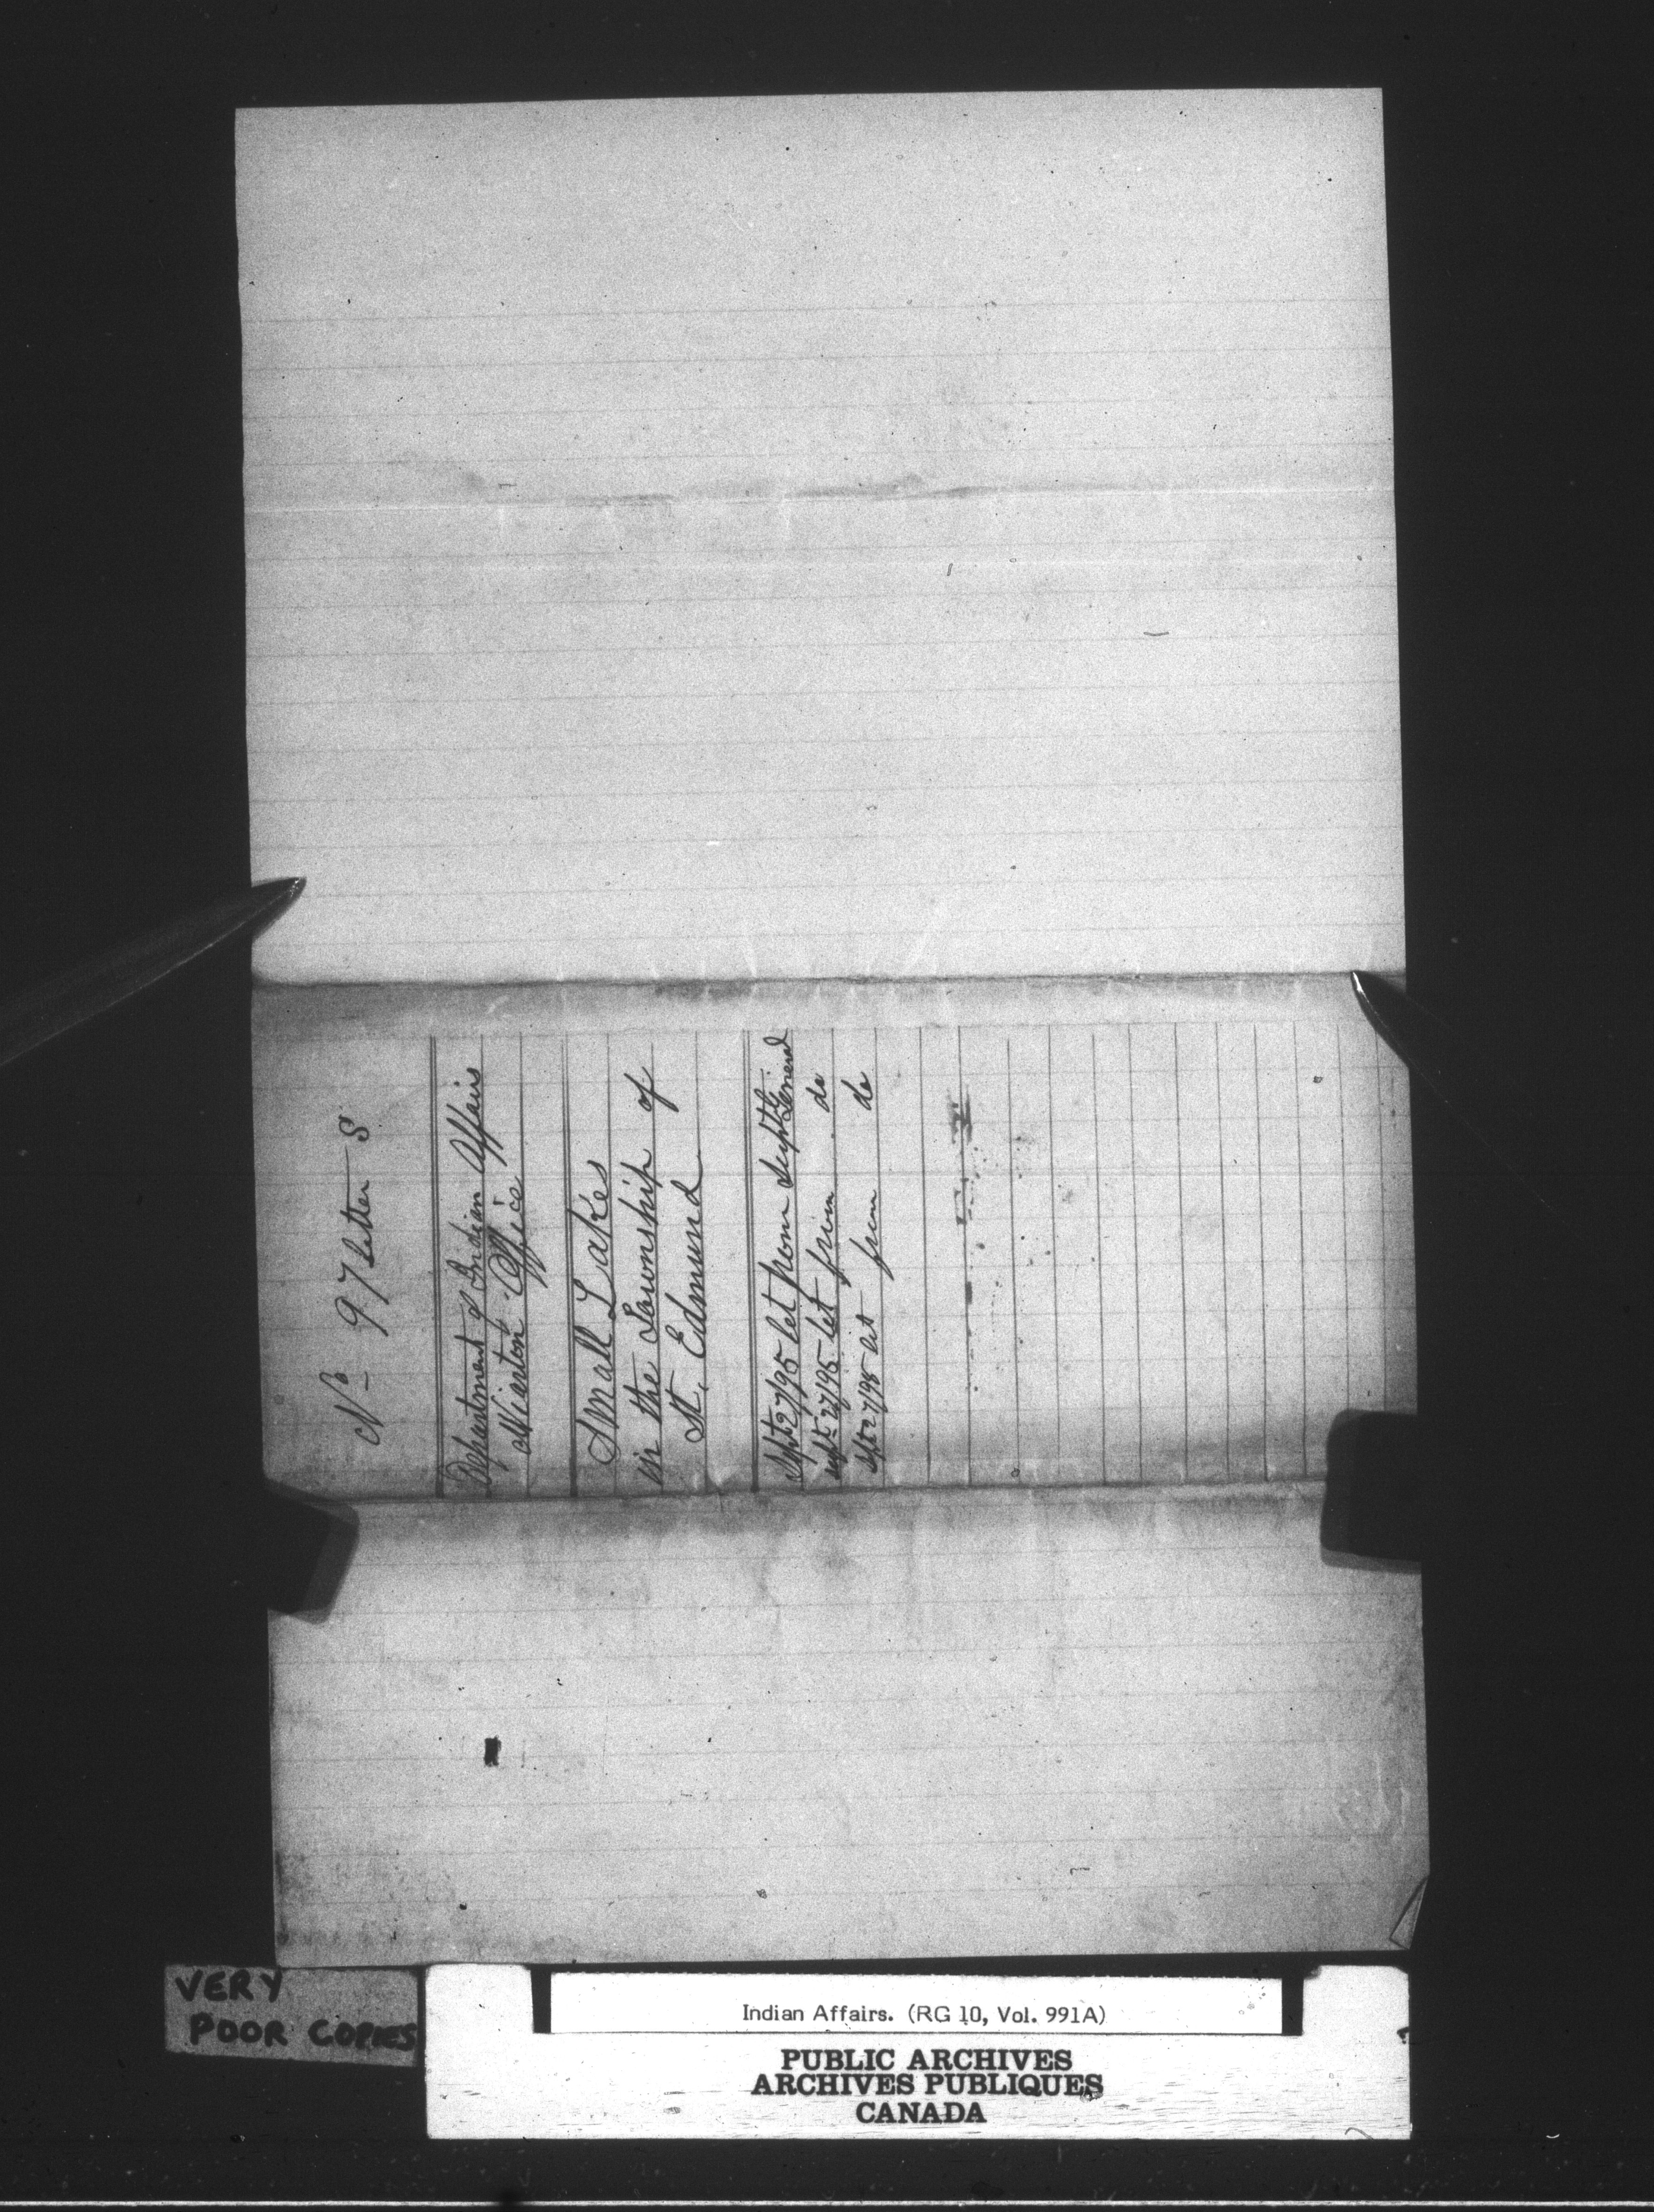 No 97 letter S
Department of Indian Affairs
Wiarton Office
Small Lakes
in the Township of
St. Edmund
Sept 27/95 let from Supt General
Sept 27/95 let from do
Sept 27/95 let from do
VERY
POOR COPIES
Indian Affairs. (RG 10, Vol. 991A)
PUBLIC ARCHIVES
ARCHIVES PUBLIQUES
CANADA